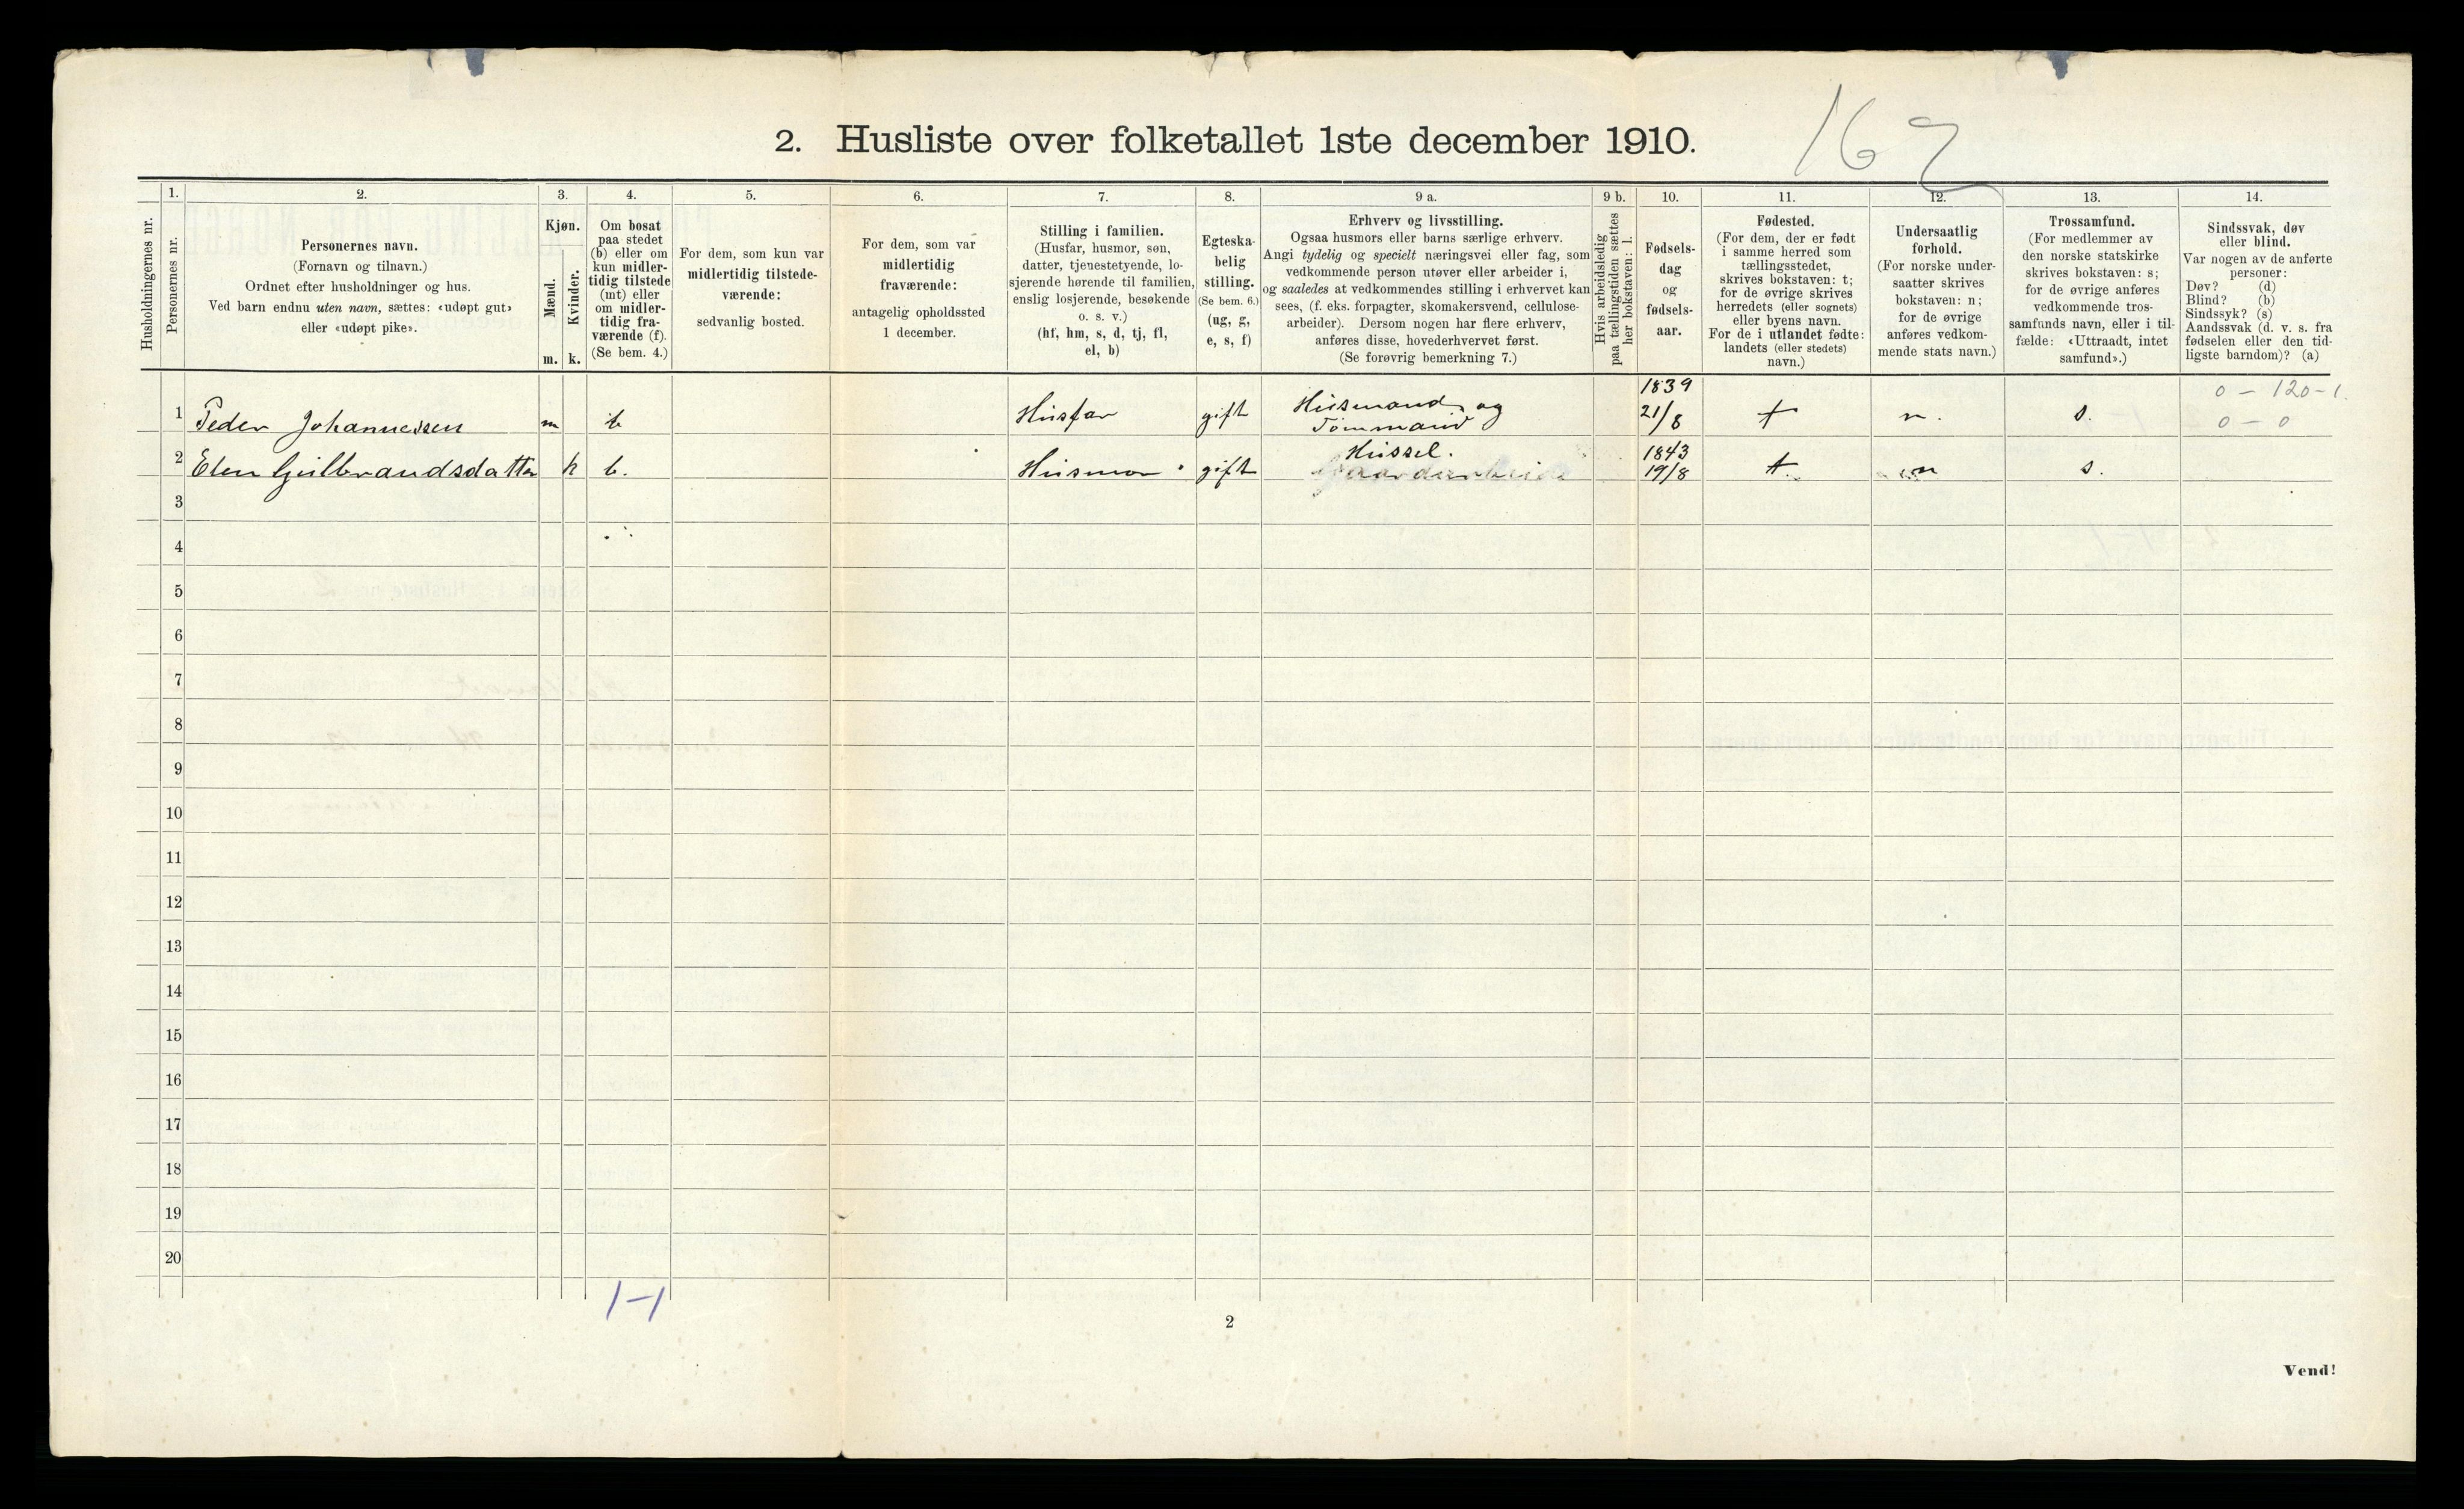 162
2. Husliste over folketallet 1ste december 1910.
Husholdningernes nr.
1.
Personernes nr.
2.
Personernes navn.
(Fornavn og tilnavn.)
Ordnet efter husholdninger og hus.
Ved barn endnu uten navn, sættes: «udøpt gut»
eller «udøpt pike».
3.
Kjøn.
Mænd.
Kvinder.
m. k.
4.
Om bosat
paa stedet
(b) eller om
kun midler-
tidig tilstede
(mt) eller
om midler-
tidig fra-
værende (f).
(Se bem. 4.)
5.
For dem, som kun var
midlertidig tilstede-
værende:
sedvanlig bosted.
6.
For dem, som var
midlertidig
fraværende:
antagelig opholdssted
1 december.
7.
Stilling i familien.
(Husfar, husmor, søn,
datter, tjenestetyende, lo-
sjerende hørende til familien,
enslig losjerende, besøkende
o. s. v.)
(hf, hm, s, d, tj, fl,
el, b)
8.
Egteska-
belig
stilling.
(Se bem. 6.)
(ug, g,
e, s, f)
9 a.
Erhverv og livsstilling.
Ogsaa husmors eller barns særlige erhverv.
Angi tydelig og specielt næringsvei eller fag, som
vedkommende person utøver eller arbeider i,
og saaledes at vedkommendes stilling i erhvervet kan
sees, (f. eks. forpagter, skomakersvend, cellulose-
arbeider). Dersom nogen har flere erhverv,
anføres disse, hovederhvervet først.
(Se forøvrig bemerkning 7.)
9 b.
Hvis arbeidsledig
paa tællingstiden sættes
her bokstaven: l.
10.
Fødsels-
dag
og
fødsels-
aar.
11.
Fødested.
(For dem, der er født
i samme herred som
tællingsstedet,
skrives bokstaven: t;
for de øvrige skrives
herredets (eller sognets)
eller byens navn.
For de i utlandet fødte:
landets (eller stedets)
navn.)
12.
Undersaatlig
forhold.
(For norske under-
saatter skrives
bokstaven: n;
for de øvrige
anføres vedkom-
mende stats navn.)
13.
Trossamfund.
(For medlemmer av
den norske statskirke
skrives bokstaven: s;
for de øvrige anføres
vedkommende tros-
samfunds navn, eller i til-
fælde: «Uttraadt, intet
samfund».)
14.
Sindssvak, døv
eller blind.
Var nogen av de anførte
personer:
Døv? (d)
Blind? (b)
Sindssyk? (s)
Aandssvak (d. v. s. fra
fødselen eller den tid-
ligste barndom)? (a)
1839 0 - 120-1.
1 Peder Johannessen m b Husfar gift Husmand og 21/8 t n. s. 0 - 0
Tømmand
Hussel. 1843
2 Elen Gulbrandsdatter k b. Husmor gift Gaardarbeide 19/8 t. n s.
3
4
5
6
7
8
9
10
11
12
13
14
15
16
17
18
19
20
1-1
2
Vend!